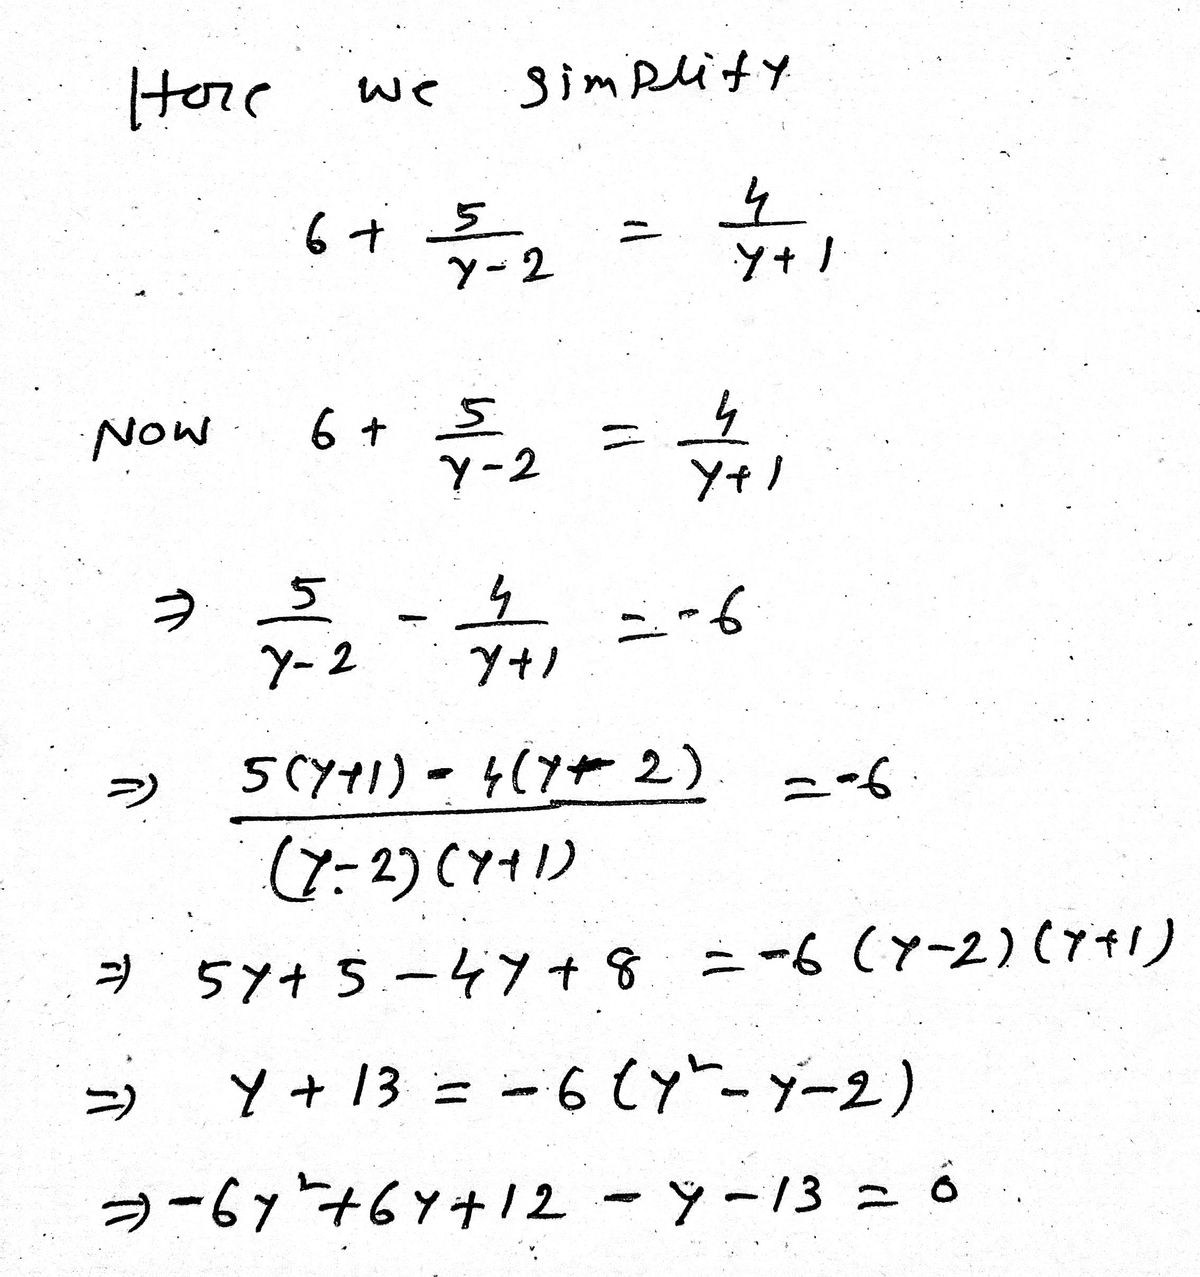 Here we simplify
6 + 5/(y-2) = 4/(y+1)
Now 6 + 5/(y-2) = 4/(y+1)
⇒ 5/(y-2) - 4/(y+1) = -6
⇒ (5(y+1) - 4(y-2))/((y-2)(y+1)) = -6
⇒ 5y + 5 - 4y + 8 = -6(y-2)(y+1)
⇒ y + 13 = -6(y² - y - 2)
⇒ -6y² + 6y + 12 - y - 13 = 0